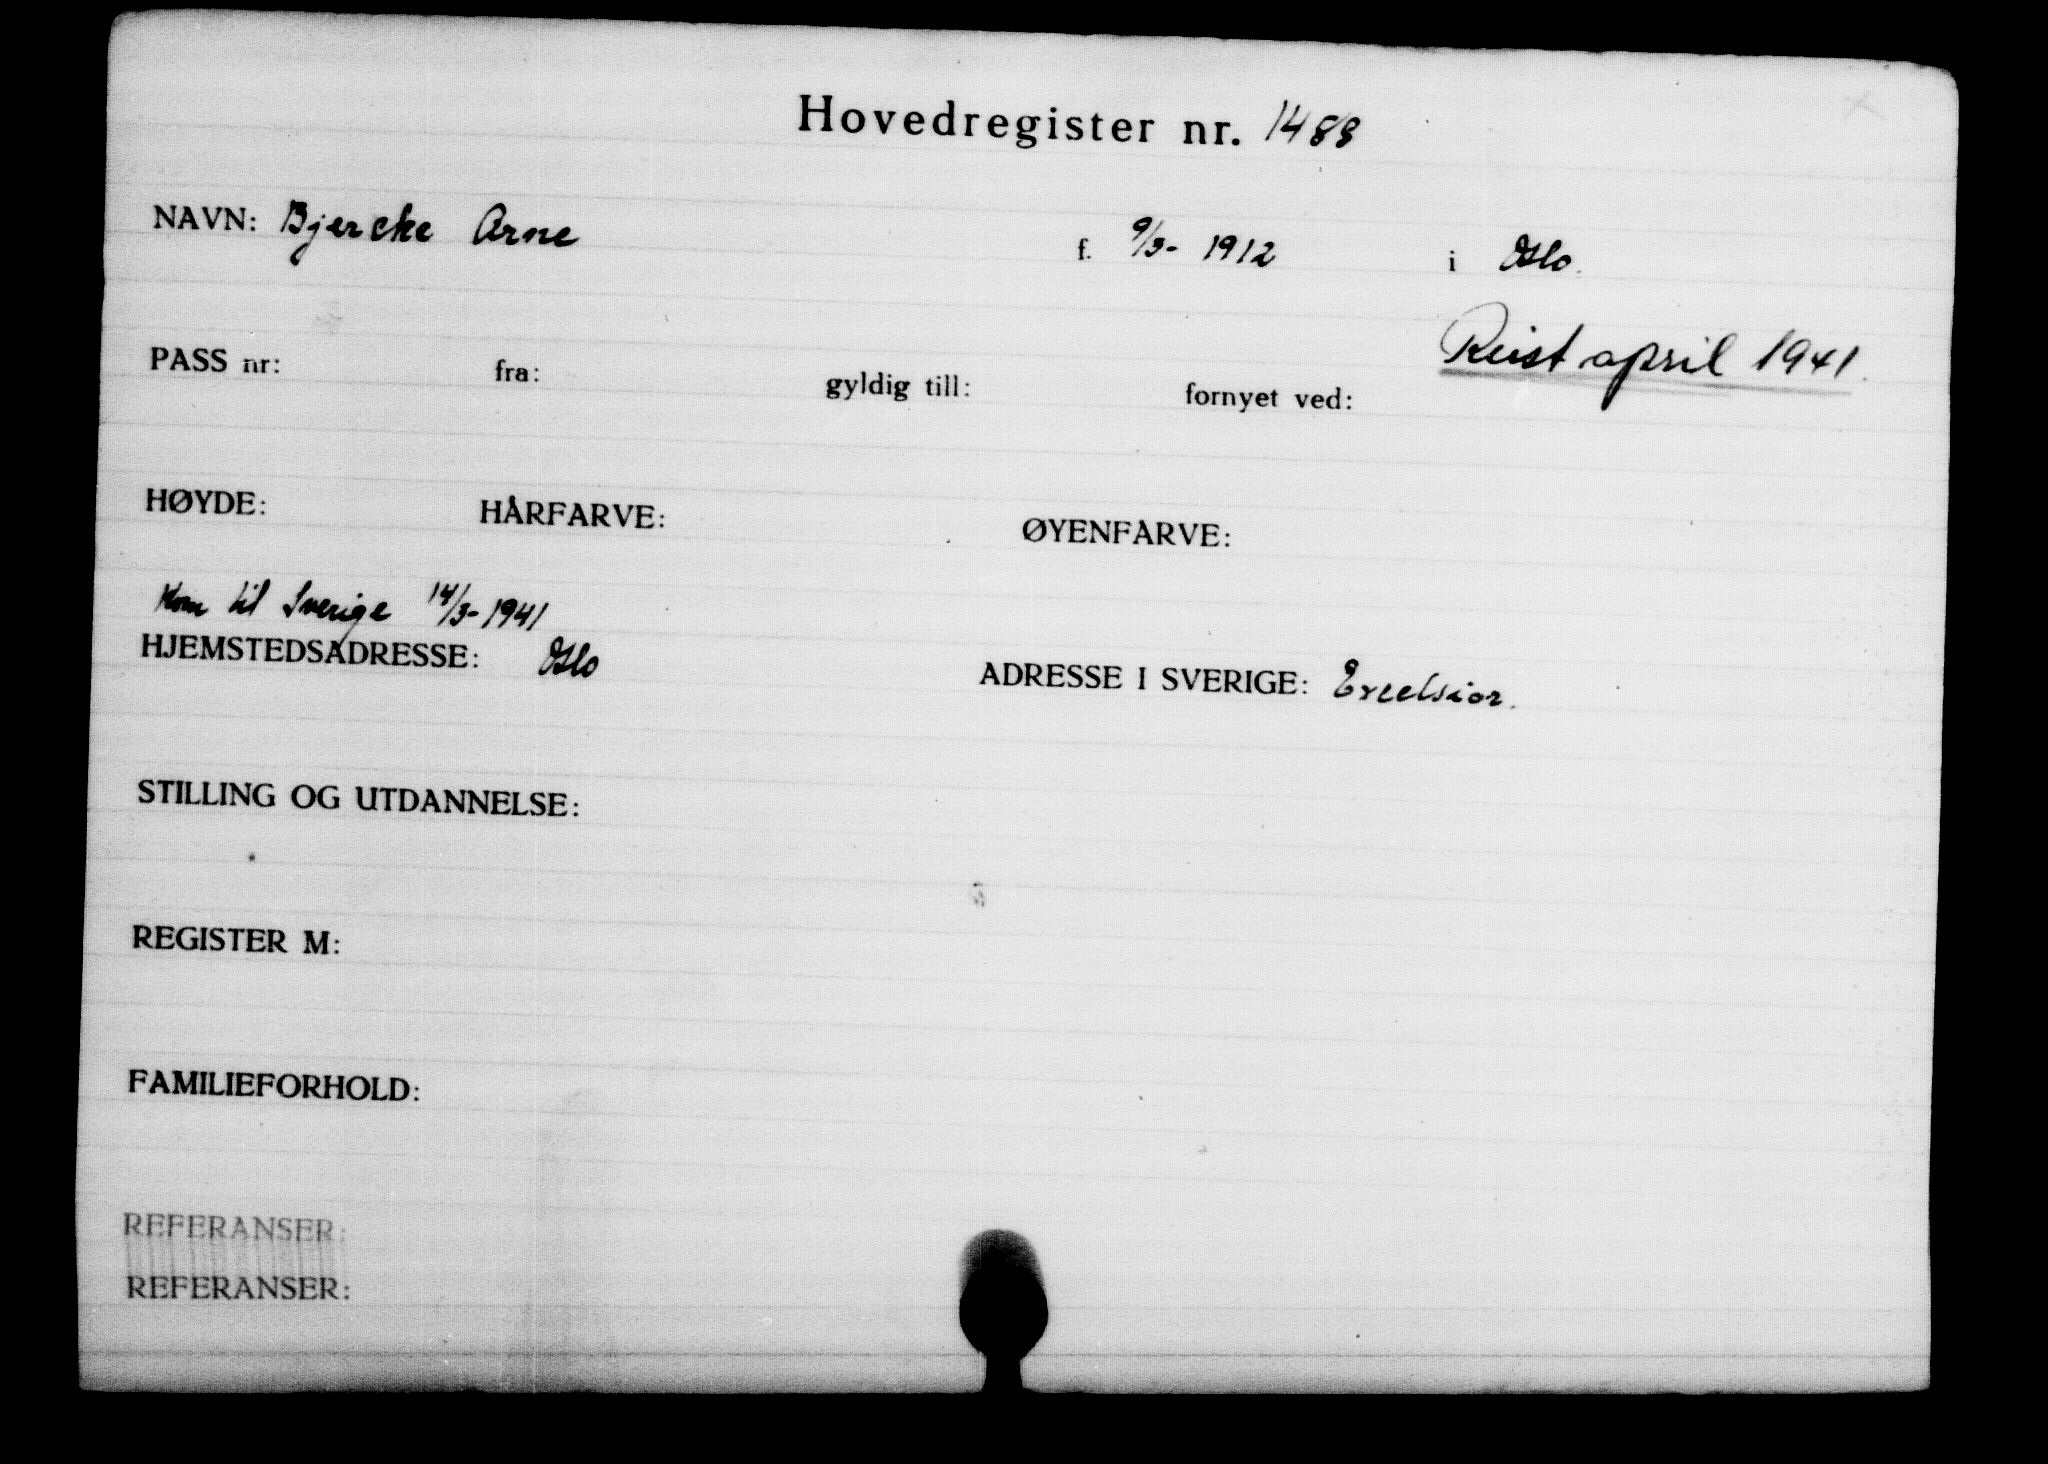 Hovedregister nr. 1488
NAVN: Bjercke Arne f. 9/3- 1912 i Oslo.
Reist april 1941.
PASS nr: fra: gyldig till: fornyet ved:
HØYDE: HÅRFARVE: ØYENFARVE:
Kom til Sverige 14/3-1941
HJEMSTEDSADRESSE: Oslo ADRESSE I SVERIGE: Excelsior.
STILLING OG UTDANNELSE:
REGISTER M:
FAMILIEFORHOLD:
REFERANSER:
REFERANSER: